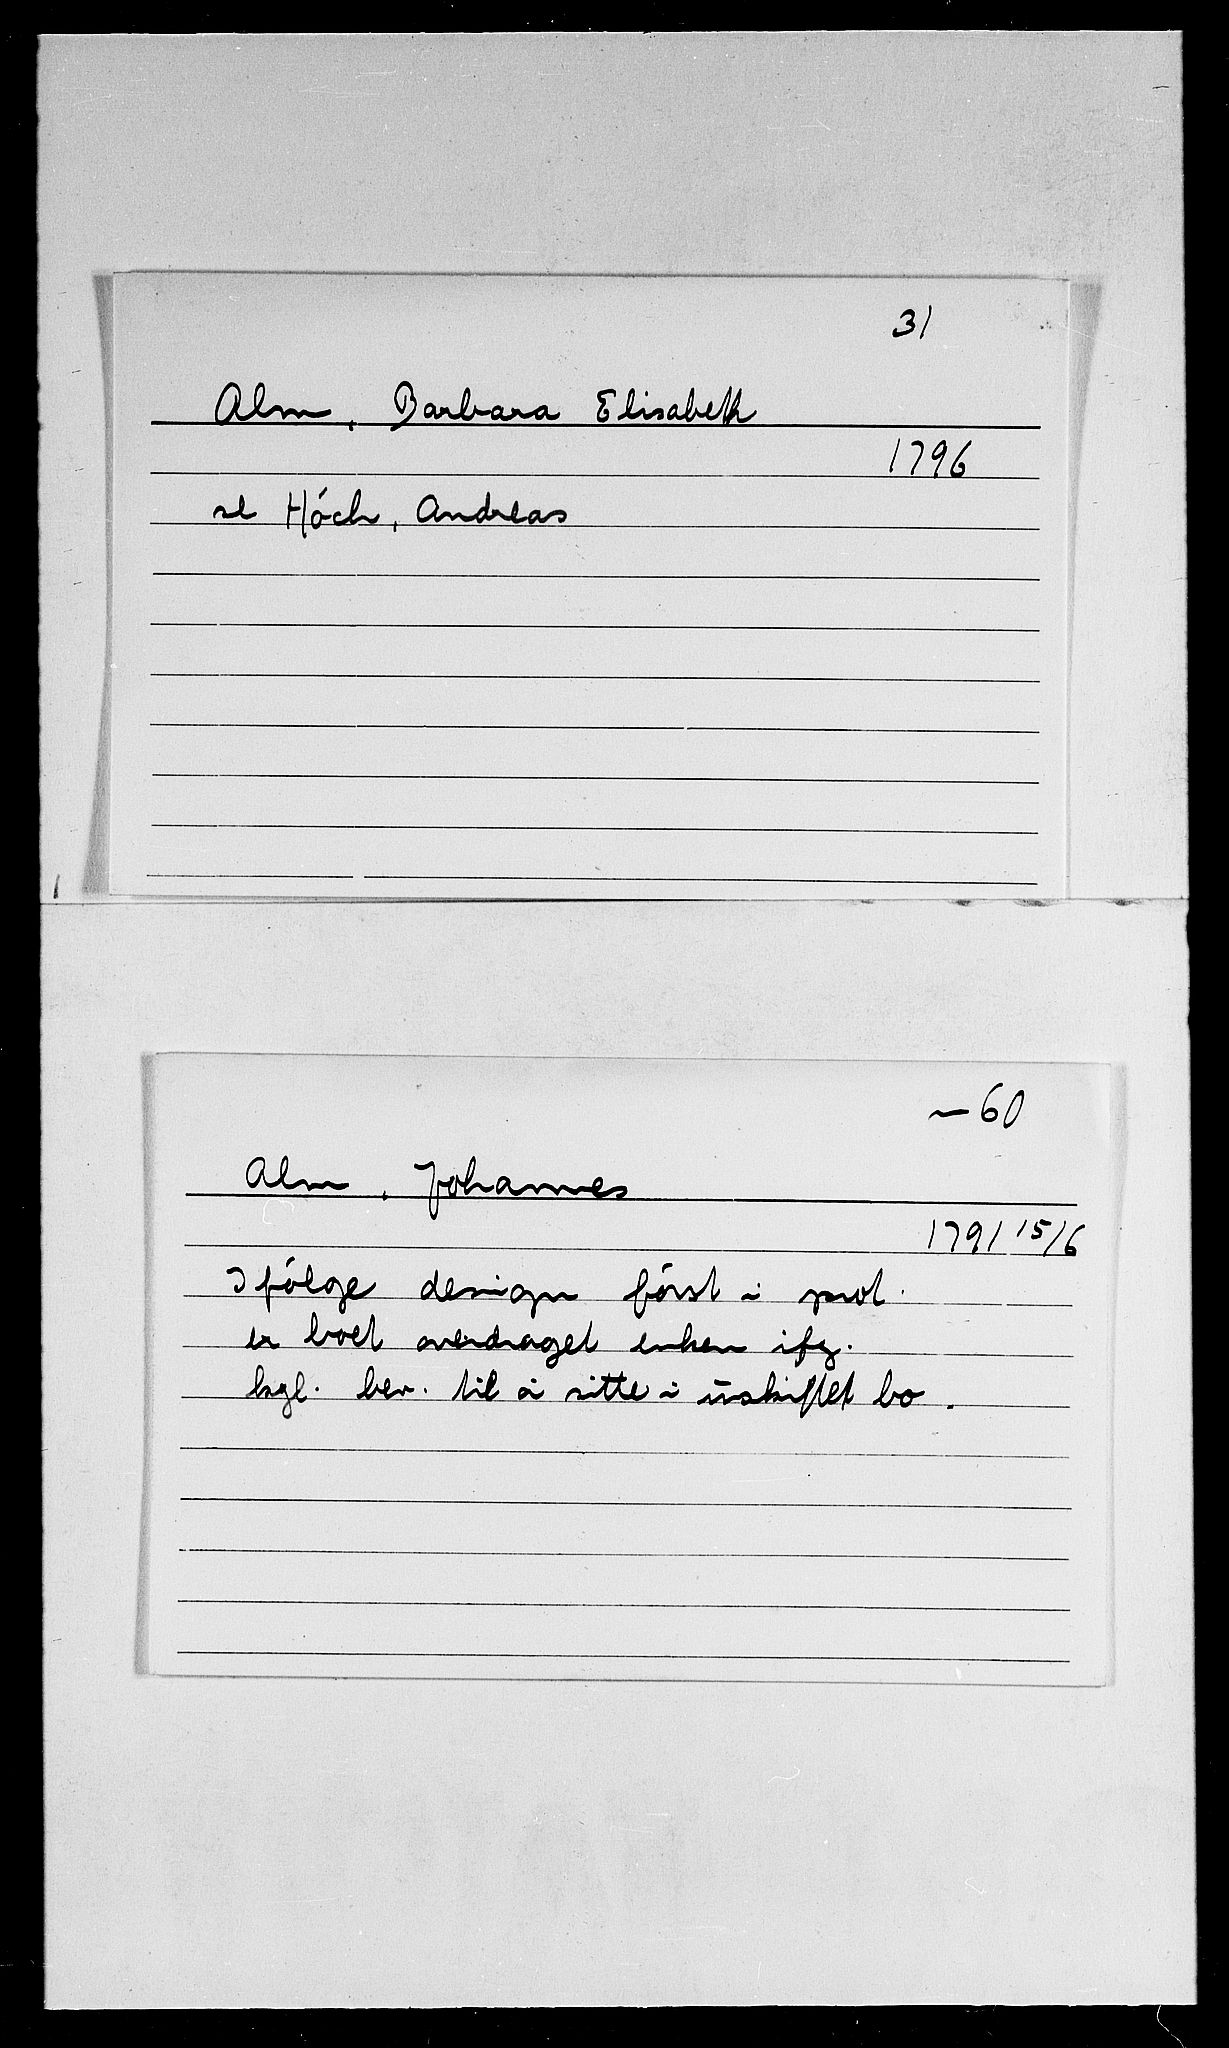 31
Alm, Barbara Elisabeth
1796
se Höch, Andreas
~60
Alm, Johannes
1791 15/6
Ifölge design först i prot.
er boet overdraget enken ifg.
kgl. bev. til å sitte i uskiftet bo.